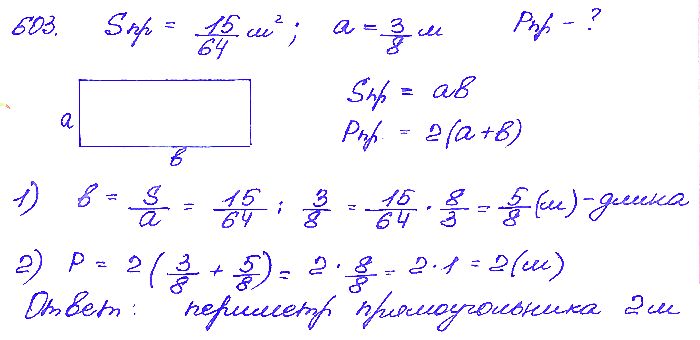 603. Sпр = 15/64 м²; a = 3/8 м Pпр - ?
Sпр = aв
a
Pпр. = 2(a+в)
в
1) в = S/a = 15/64 : 3/8 = 15/64 · 8/3 = 5/8 (м) - длина
2) P = 2(3/8 + 5/8) = 2 · 8/8 = 2 · 1 = 2(м)
Ответ: периметр прямоугольника 2м